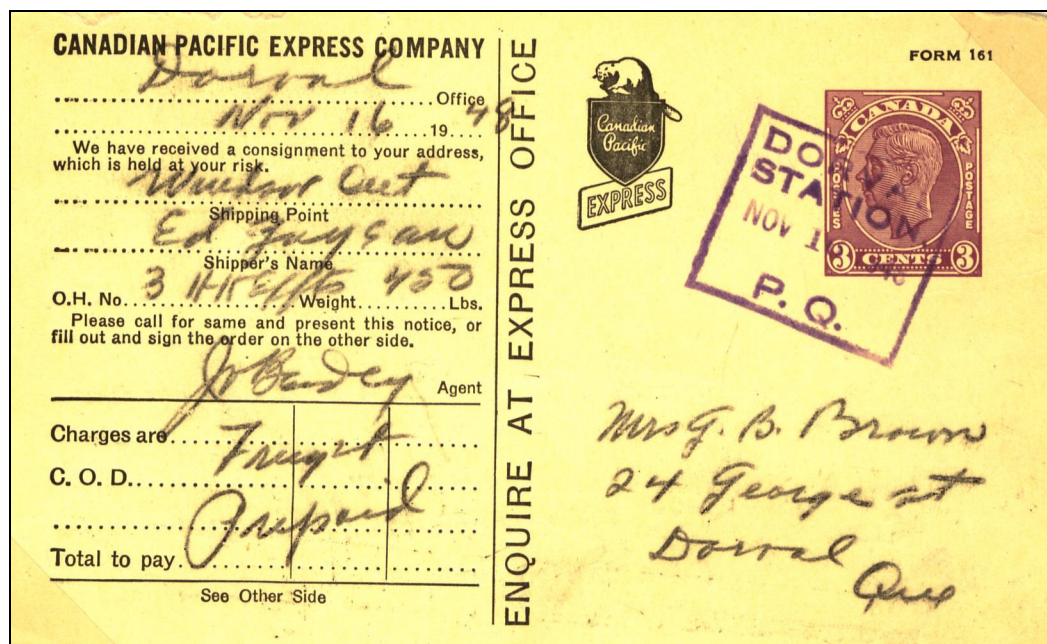 CANADIAN PACIFIC EXPRESS COMPANY
Dorval
Office
Nov 16 19 48
We have received a consignment to your address,
which is held at your risk.
Windsor Ont
Shipping Point
Ed
Shipper's Name
O.H. No. 3 Weight 450 Lbs.
Please call for same and present this notice, or
fill out and sign the order on the other side.
Agent
Charges are Freight
C. O. D.
Prepaid
Total to pay
See Other Side
ENQUIRE AT EXPRESS OFFICE
Canadian
Pacific
EXPRESS
FORM 161
CANADA
POSTES
POSTAGE
3 CENTS 3
STATION
NOV
P. Q.
Mrs G. B. Brown
24 George st
Dorval
Que